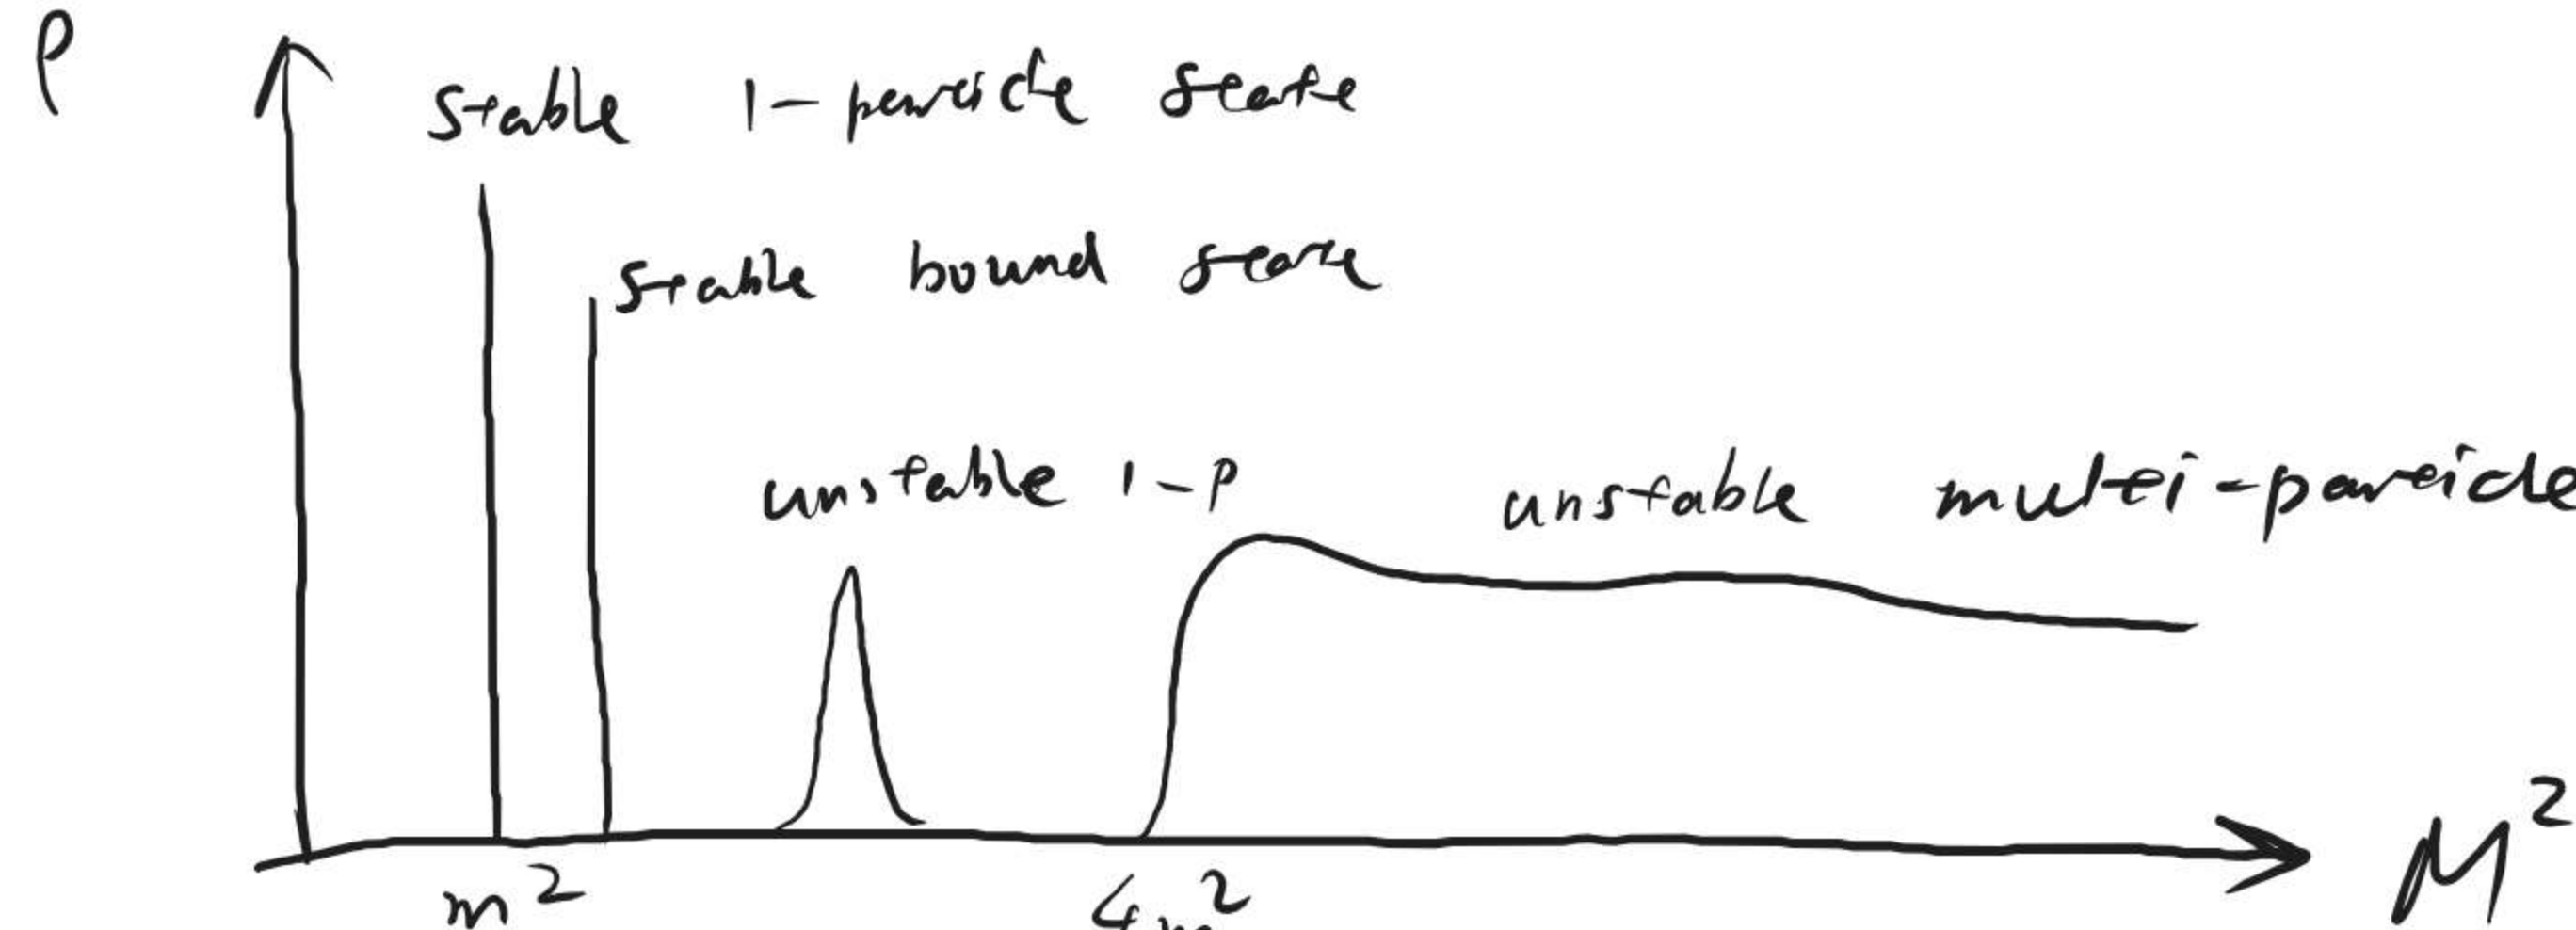 ρ
stable 1-particle state
stable bound state
unstable 1-p
unstable multi-particle
M²
m²
4m²